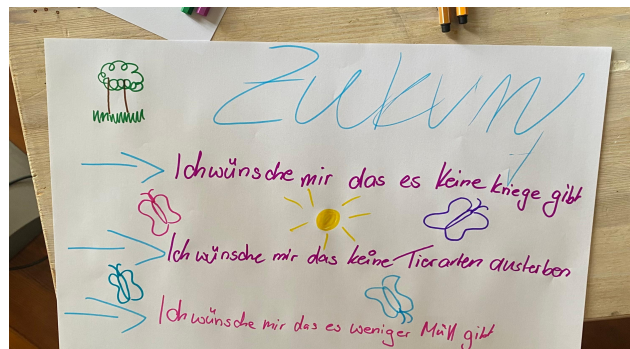 Zukunft
Ich wünsche mir das es keine kriege gibt
Ich wünsche mir das keine Tierarten austerben
Ich wünsche mir das es weniger Müll gibt